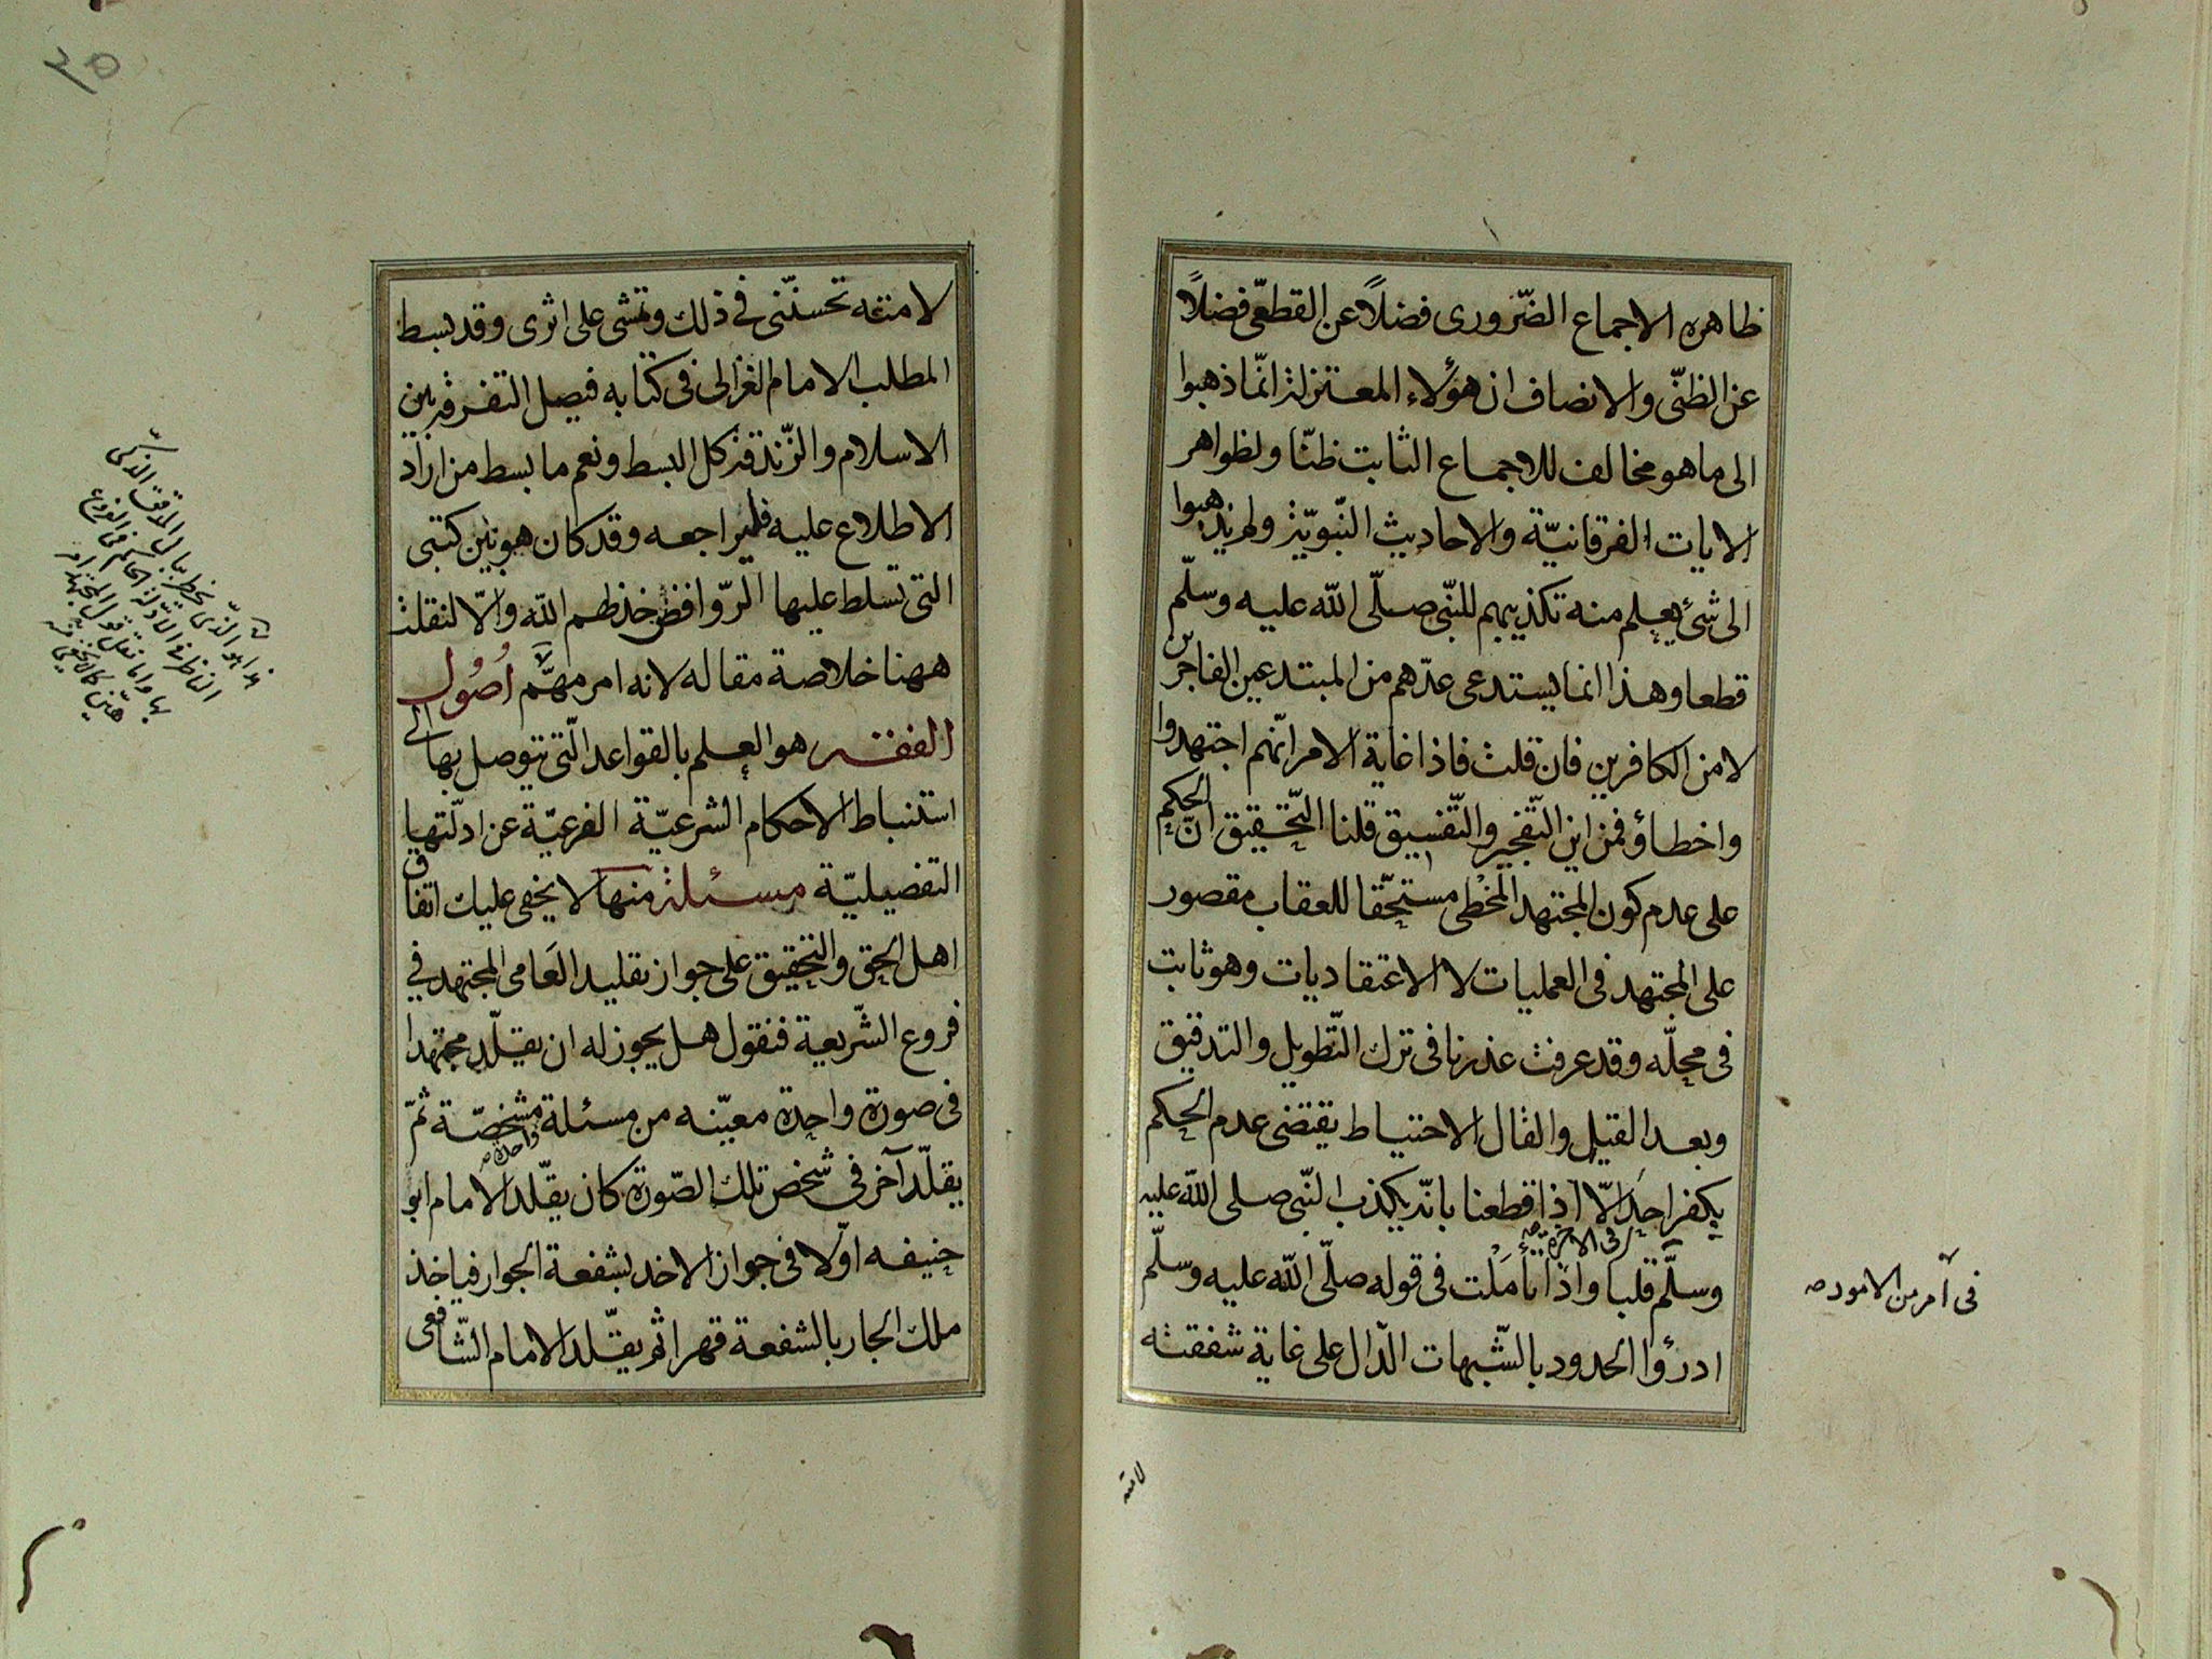 ظاهره الاجماع الضّرورى فضلاً عن القطعّى فضلاً
عن الظنّى والانصاف ان هؤلاء المعتزلة انّما ذهبوا
الى ما هو مخالف للاجماع الثابت ظنّا ولظواهر
الايات الفرقانيّة والاحاديث النّبويّة ولم يذهبوا
الى شئ يعلم منه تكذيبهم للنّبى صلّى اللّه عليه وسلّم
قطعا وهذا انما يستدعى عدّهم من المبتدعين الفاجرين
لا من الكافرين فان قلت فاذا غاية الامر انّهم اجتهدوا
واخطاؤ فمن اين التّفجير والتّفسيق قلنا التّحقيق انّ الحكم
على عدم كون المجتهد المخْطى مستحّقا للعقاب مقصور
على المجتهد فى العمليات لا الاعتقاديات وهو ثابت
فى محلّه وقد عرفت عذرنا فى ترك التّطويل والتدقيق
وبعد القيل والقال الاحتياط يقتضى عدم الحكم
بكفر احد الّا اذا قطعنا بانّه يكذب النّبى صلى اللّه عليه
وسلّم قلبا واذا تأملْت فى قوله صلّى اللّه عليه وسلّم
ادرؤا الحدود بالشّبهات الدّال على غاية شفقته
فى آمر من الامور صه
لامته
٣٥
لامته تحسنّنى فى ذلك وتمشى على اثرى وقد بسط
المطلب الامام الغزالى فى كتابه فيصل التفرقة بين
الاسلام والزّندقة كل البسط ونعم ما بسط من اراد
الاطلاع عليه فليراجعه وقد كان هو بين كتبى
التى تسلط عليها الرّوافض خذطهم اللّه والّا لنقلت
ههنا خلاصة مقاله لانه امر مهَّم اُصُول
الفقه هو العلم بالقواعد الّتى يتوصل بها الى
استنباط الاحكام الشرعيّة الفرعيّة عن ادلّتها
التفصيليّة مسئلة منها لا يخفى عليك اتفاق
اهل الحق والتحقيق على جواز تقليد العَامى المجتهد فى
فروع الشّريعة فنقول هل يجوز له ان يقلّد مجتهدا
فى صورة واحدة معيّنه من مسئلة مشخصّة ثمّ
يقلّد آخر فى شخص تلك الصّورة كان يقّلد الامام ابو
حنيفه اوّلا فى جواز الاخد بشفعة الجوار فياخذ
ملك الجار بالشفعة قهرا ثم يقّلد الامام الشّافعى